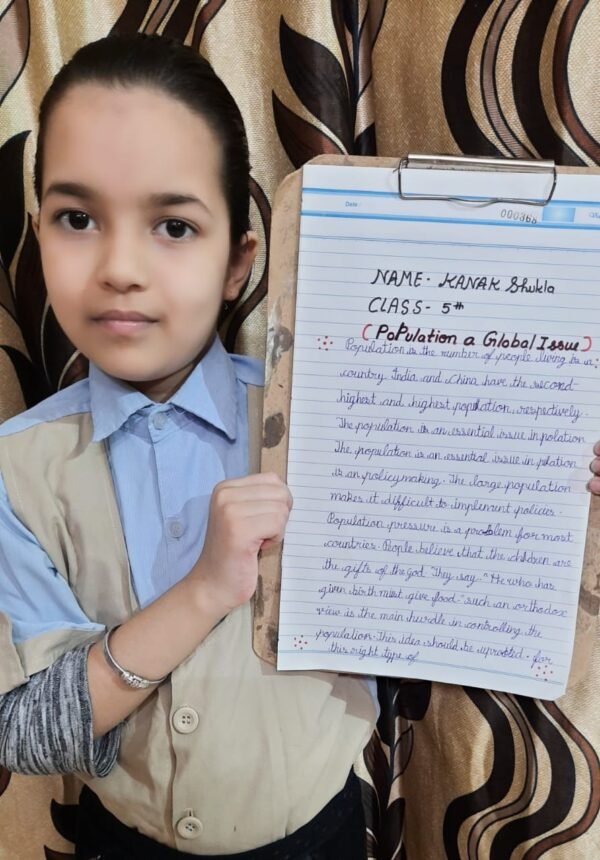 Date :
000368
NAME - KANAK Shukla
CLASS - 5th
(Population a Global Issue)
Population is the number of people living in a
country. India and China have the second
highest and highest population, respectively.
The population is an essential issue in polation
The population is an essential issue in plation
is an policymaking. The large population
makes it difficult to implement policies.
Population pressure is a problem for most
countries. People believe that the children are
the gifts of the god. They say.." He who has
given birth must give food." such an orthodox
view is the main hurdle in controlling the
population. This idea should be uprooted. for
this right type of